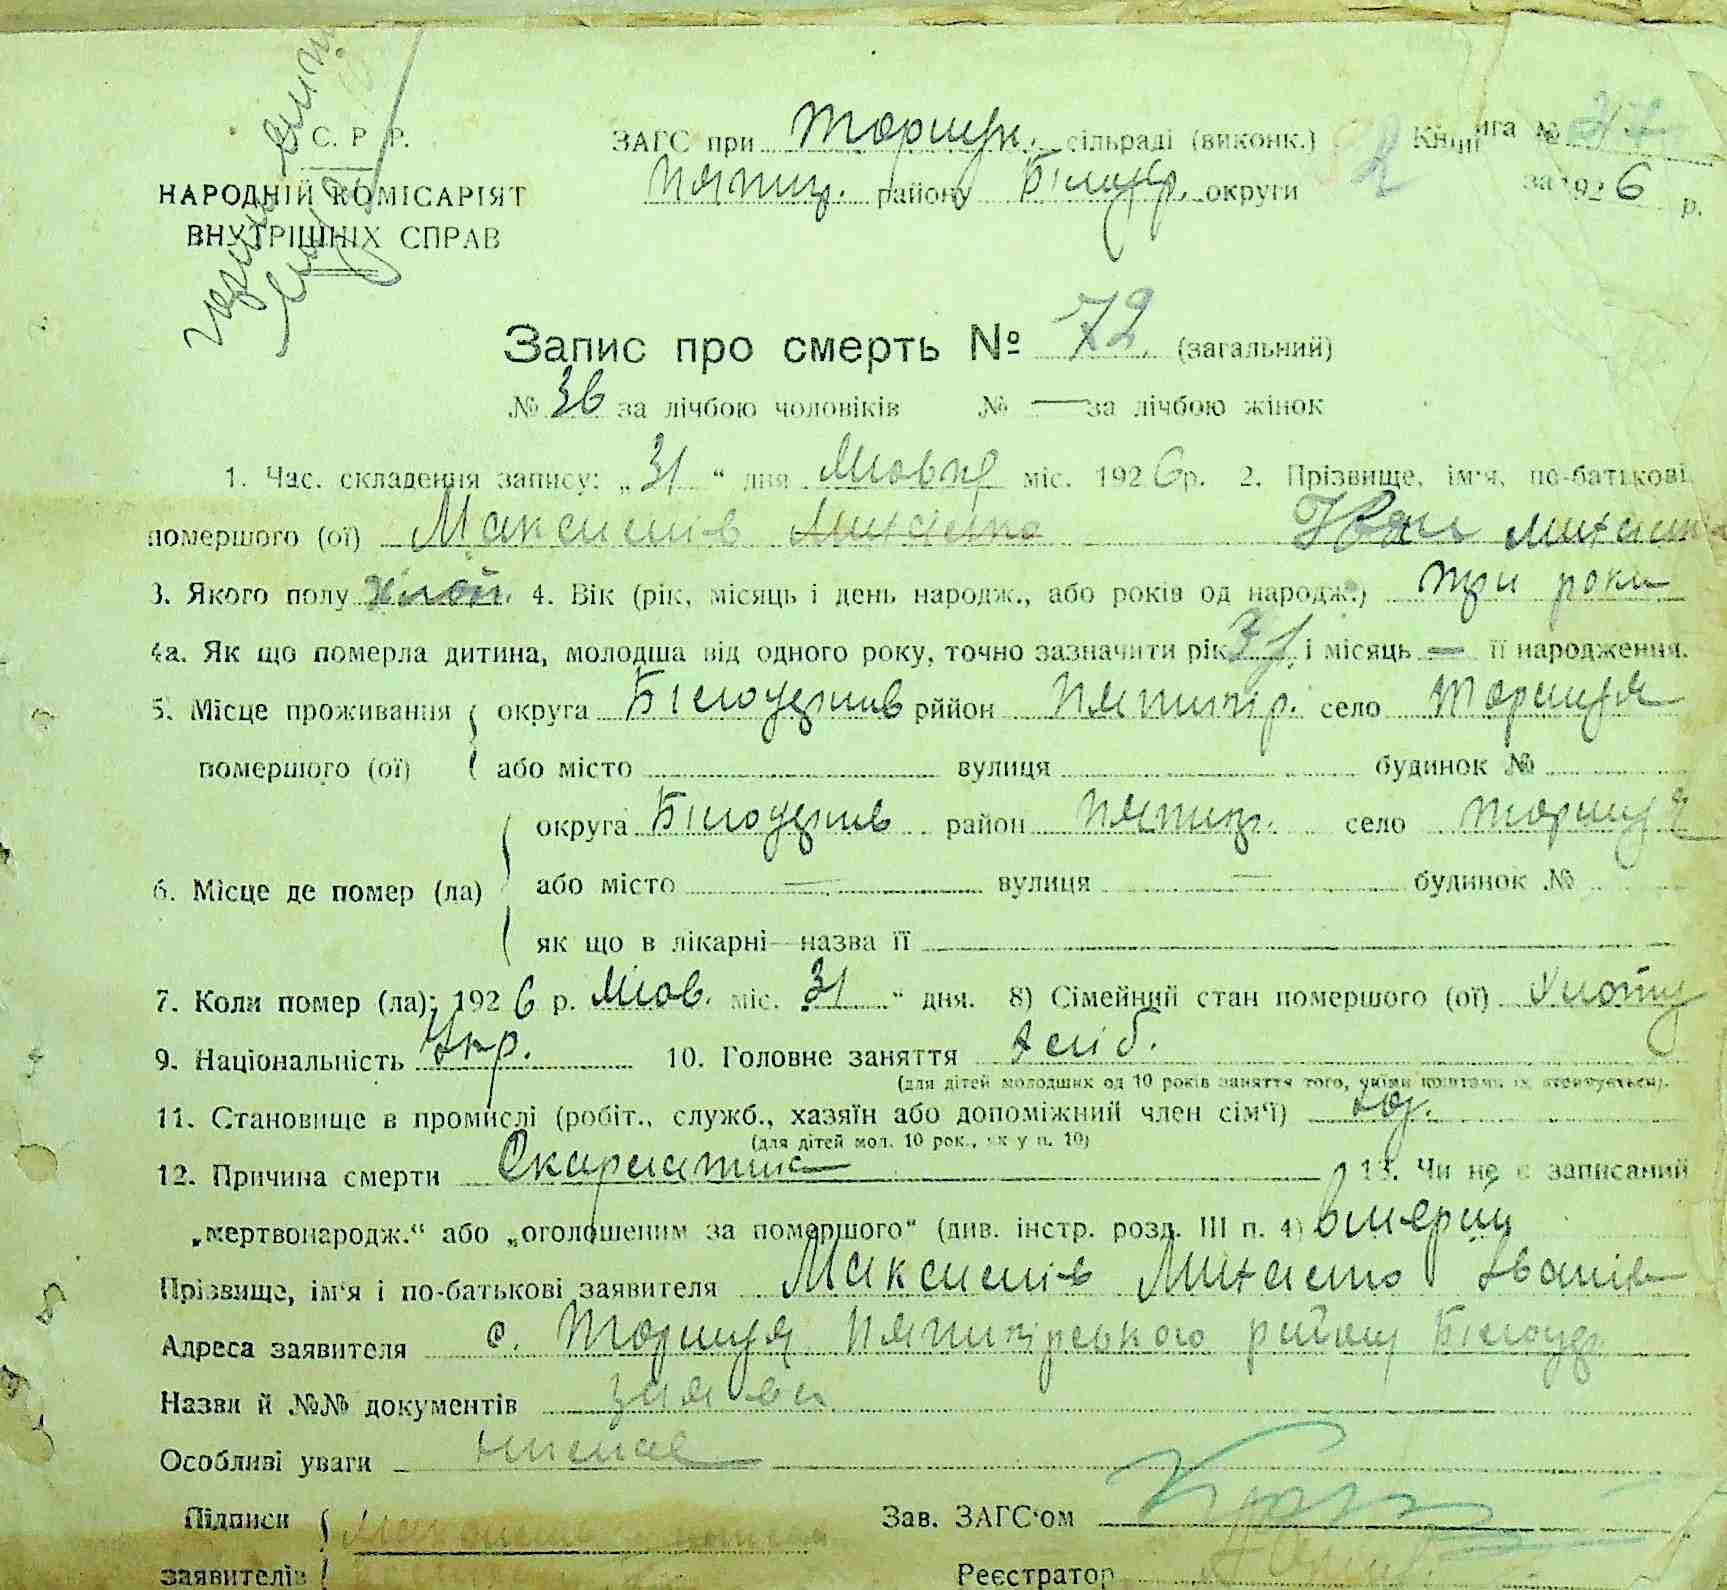 С. Р. Р.
НАРОДНІЙ КОМІСАРІЯТ
ВНУТРІШНІХ СПРАВ
ЗАГС при Торчиця. сільраді (виконк.) Книга №
Пятиг. району Білоцер. округи за 1926 р.
Запис про смерть № 72 (загальний)
№ 36 за лічбою чоловіків № — за лічбою жінок
1. Час. складення запису: „31“ дня Жовтня міс. 1926 р. 2. Прізвище, ім'я, по-батькові
помершого (ої) Максимів Михайло Іван Михайло
3. Якого полу 4. Вік (рік, місяць і день народж., або років од народж.) три роки
4а. Як що померла дитина, молодша від одного року, точно зазначити рік 3 і місяць — її народження.
5. Місце проживання округа Білоцерків рййон Пятигір. село Торчиця
помершого (ої) або місто вулиця будинок №
округа Білоцерків район Пятигір. село Торчиця
6. Місце де помер (ла) або місто — вулиця — будинок №
як що в лікарні—назва її
7. Коли помер (ла): 1926 р. Жов. міс. 31 “ дня. 8) Сімейний стан помершого (ої)
9. Національність Укр. 10. Головне заняття хліб.
(для дітей молодших од 10 років заняття того, якіми коштами їх
11. Становище в промислі (робіт., служб., хазяїн або допоміжний член сім'ї) хаз.
(для дітей мол. 10 рок., як у п. 10)
12. Причина смерти Скарлатина 13. Чи не є записаний
„мертвонародж.“ або „оголошеним за помершого“ (див. інстр. розд. III п. 4) вмерший
Прізвище, ім'я і по-батькові заявителя Максимів Михайло Іванів
Адреса заявителя с. Торчиця Пятигірського району Білоцер
Назви й №№ документів заява
Особливі уваги немає
Підписи
заявителів
Зав. ЗАГС'ом
Реєстратор